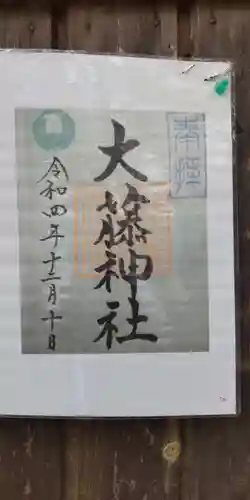 奉拝
大籐神社
令和四年十二月十日